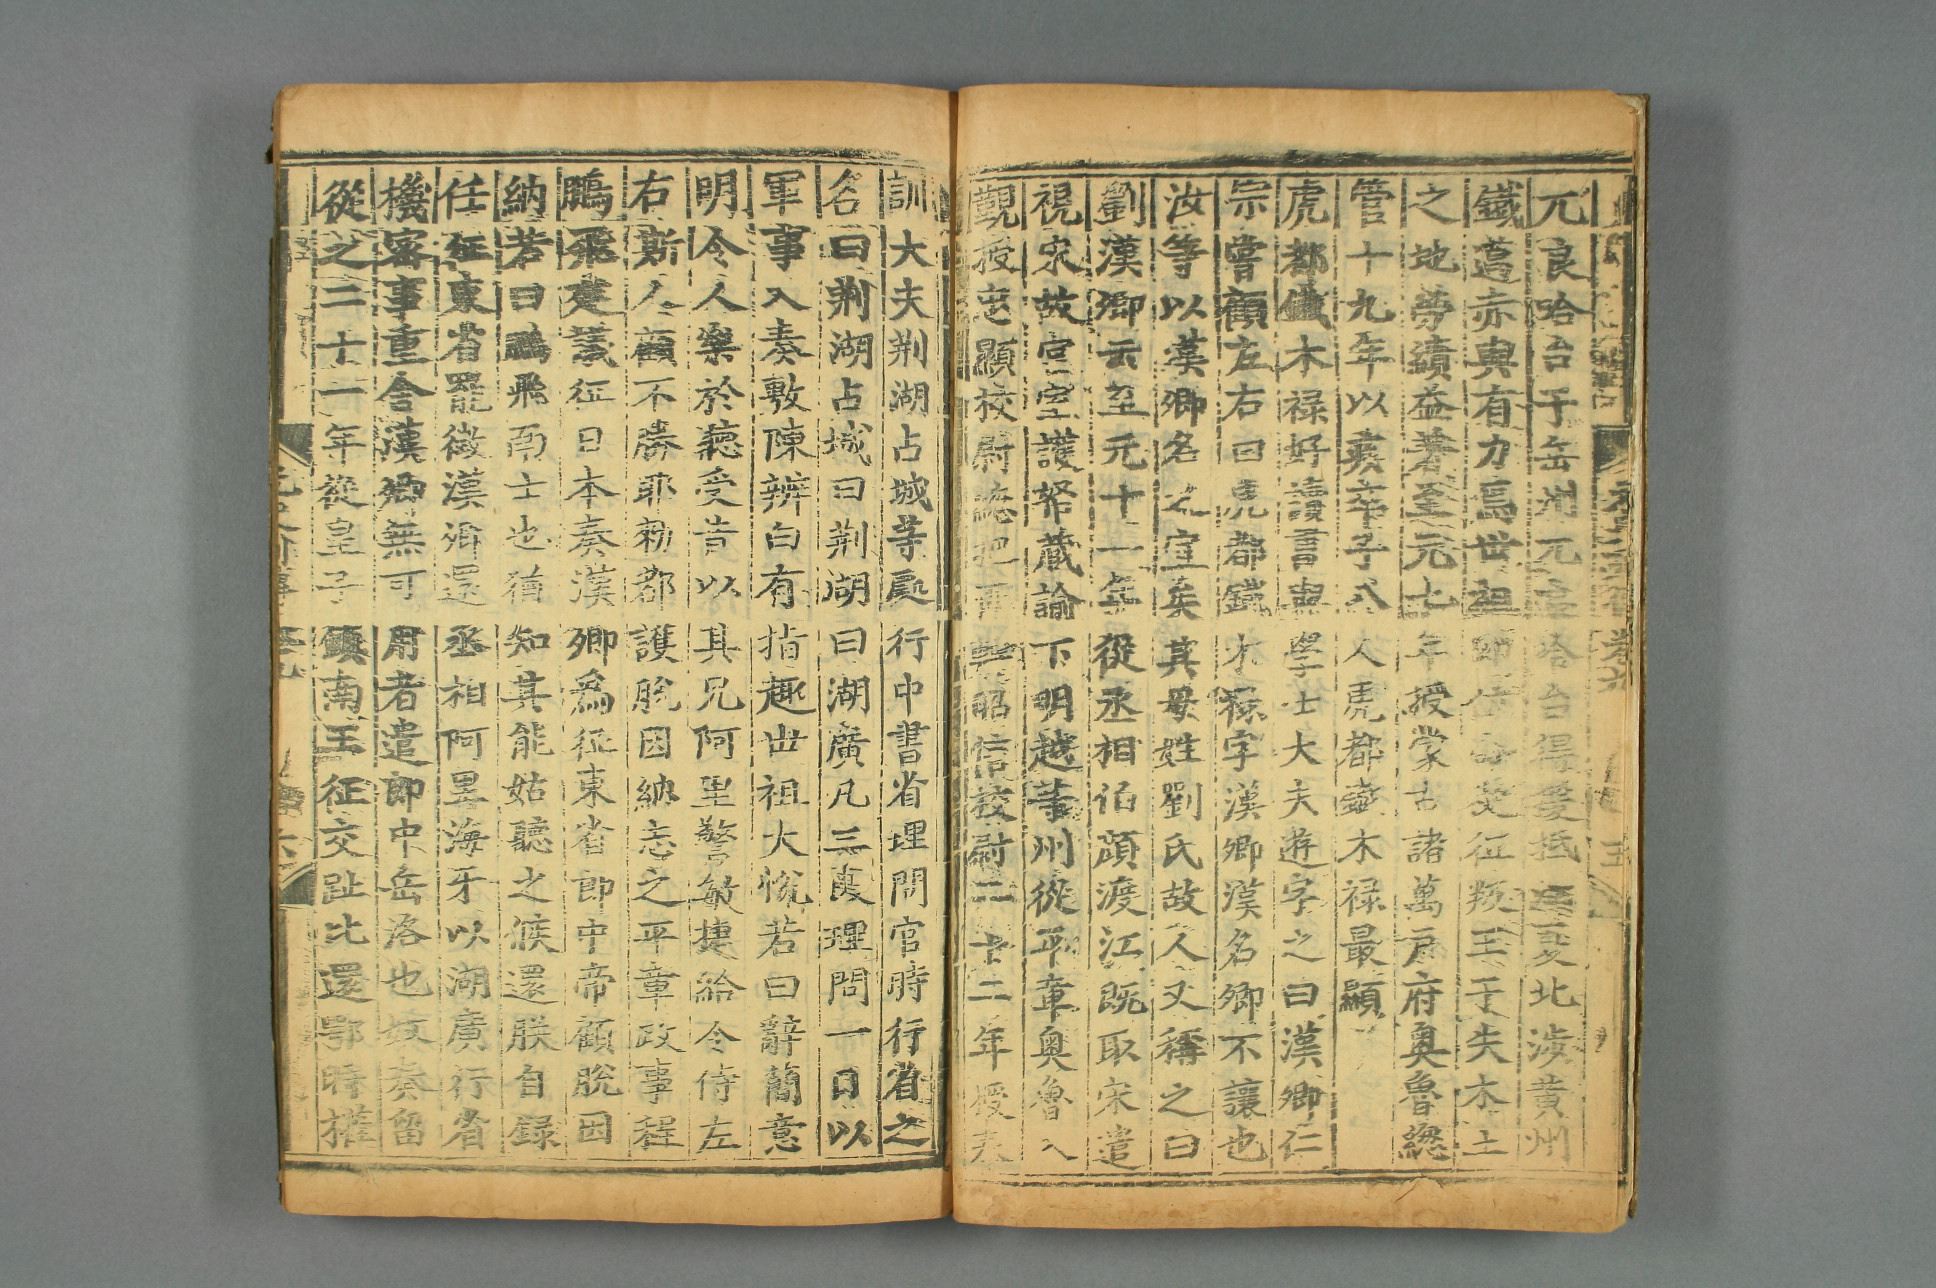 兀良哈台于岳州兀良哈台得援抵亟北渉黄州
鐵邁赤與有力焉世祖即位命從征叛王于失木土
之地勞績益著至元七年授蒙古諸萬戶府奥魯緫
管十九年以疾卒子八人虎都鐵木禄最顯
虎都鐵木禄好讀書與學士大夫遊字之曰漢卿仁
宗嘗顧左右曰虎都鐵木禄字漢卿漢名卿不讓也
汝等以漢卿名之宜矣其母姓劉氏故人又稱之曰
劉漢卿云至元十一年從丞相伯顔渡江既取宋遣
視宋故宫室護帑藏諭下明越等州從平章奥魯入
覲授忠顯校尉緫把再昭信校尉二十二年授奉
訓大夫荆湖占城等處行中書省理問官時行省之
名曰荆湖占城曰荆湖曰湖廣凡三異理問一日以
軍事入奏敷陳辨白有指趣世祖大悅若曰辭簡意
明令人樂於聽受昔以其兄阿里警敏捷給令侍左
右斯人顧不勝耶勑都護脫因納志之平章政事程
鵬飛建議征日本奏漢卿爲征東省郎中帝顧脫因
納若曰鵬飛南士也猶知其能姑聽之候還朕自録
任征東省罷徵漢卿還丞相阿里海牙以湖廣行省
機密事重舍漢卿無可用者遣郎中岳洛也奴奏留
從之二十一年從皇子鎮南王征交趾比還鄂時權